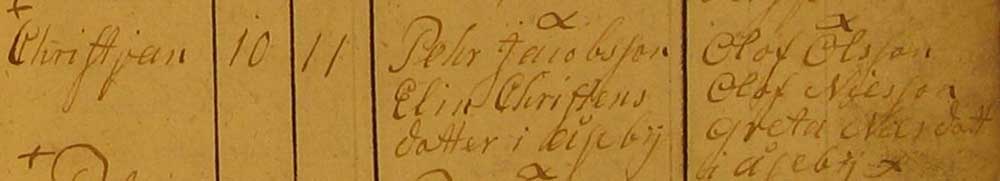 Christjan 10 11 Pehr Jacobsson Olof Olsson
Elin Christens Olof Nilsson
datter i Åseby Greta Nilsdott
i Åseby